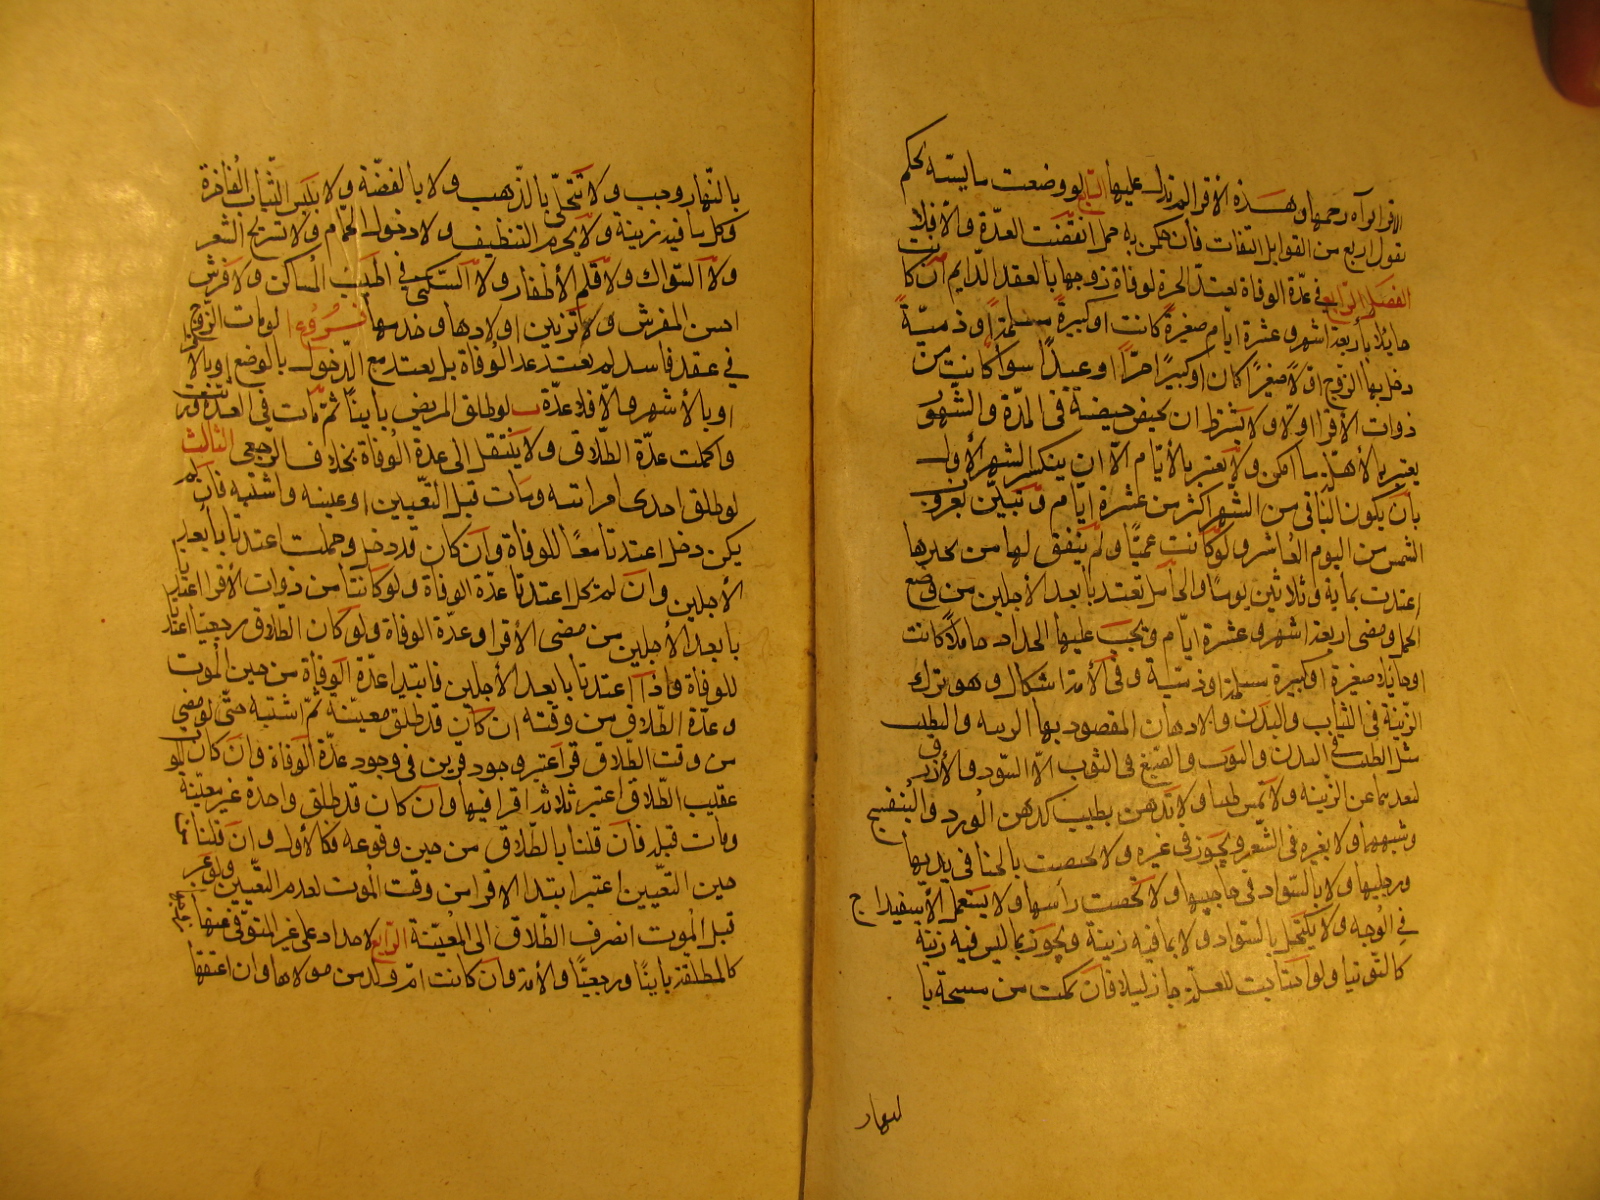 الاقرا براه رحمها وهذه الاقرا لم تدل عليها التاسع لو وضعت ما يشتبه حكم
بقول اربع من القوابل الثقات فان حكمن به حمل انقضت العدة والا فلا
الفصل الرابع في عدة الوفاة تعتد الحرة لوفاة زوجها بالعقد الدايم ان كانت
حايلا باربعة اشهر وعشرة ايام صغيرة كانت او كبيرة مسلمة او ذمية
دخل بها الزوج او لا صغيرا كان او كبيرا حرا او عبدا سوا كانت من
ذوات الاقرا او لا ولا يشترط ان تحيض حيضة في المدة والشهور
يعتبر بالاهلة ما امكن ولا يعتبر بالايام الا ان ينكسر الشهر الاول
بان يكون الباقي من الشهر اكثر من عشرة ايام وتبين بغروب
الشمس من اليوم العاشر ولو كانت عميا ولم يتفق لها من يخبرها
اعتدت بماية وثلاثين يوما والحامل تعتد بابعد الاجلين من وضع
الحمل ومضى اربعة اشهر وعشرة ايام ويجب عليها الحداد حاملا كانت
او حايلا صغيرة او كبيرة مسلمة او ذمية وفي الامة اشكال وهو ترك
الزينة في الثياب والبدن والادهان المقصود بها الزينة والتطيب
مثل الطيب في البدن والثوب والصبغ في الثوب الا السود والازرق
لبعدهما عن الزينة ولا تمس طيبا ولا تدهن بطيب كدهن الورد والبنفسج
وشبههما ولا بغيره في الشعر ويجوز في غيره ولا تختضب بالحنا في يديها
ورجليها ولا بالسواد في حاجبيها ولا تخضب راسها ولا يستعمل الاسفيداج
في الوجه ولا يكتحل بالسواد ولا بما فيه زينة ويجوز بما ليس فيه زينة
كالتوتيا ولو احتاجت للعلة جاز ليلا فان تمكنت من مسحه با
لنهار
بالنهار وجب ولا تتحلى بالذهب ولا بالفضة ولا بلبس الثياب الفاخرة
وكل ما فيه زينة ولا يحرم التنظيف ولا دخول الحمام ولا تسريح الشعر
ولا السواك ولا قلم الاظفار ولا السكنى في اطيب المساكن ولا فرش
احسن المفرش ولا تزيين اولادها وخدمها فروع ا لو مات الزوج
في عقد فاسد لم يعتد عدة الوفاة بل يعتد مع الدخول بالوضع او بالاقرا
او بالاشهر والا فلا عدة ب لو طلق المريض باينا ثم مات في العدة ورثت
واكملت عدة الطلاق ولا ينتقل الى عدة الوفاة بخلاف الرجعي الثالث
لو طلق احدى امراتيه ومات قبل التعيين او عينه واشتبه فان لم
يكن دخل اعتدتا معا للوفاة وان كان قد دخل وحملت اعتدتا بابعد
الاجلين وان لم تحمل اعتدتا عدة الوفاة ولو كانتا من ذوات الاقرا اعتدتا
بابعد الاجلين من مضى الاقرا وعدة الوفاة ولو كان الطلاق رجعيا اعتدتا
للوفاة فاذا اعتدتا بابعد الاجلين فابتدا عدة الوفاة من حين الموت
وعدة الطلاق من وقته ان كان قد طلق معينة ثم اشتبه حتى لو مضى
من وقت الطلاق قر اعتبر وجود قرين في وجود عدة الوفاة وان كان الموت
عقيب الطلاق اعتبر ثلاثة اقرا فيها وان كان قد طلق واحدة غير معينة
ومات قبله فان قلنا بالطلاق من حين وقوعه فكالاول وان قلنا من
حين التعيين اعتبر ابتدا الاقرا من وقت الموت لعدم التعيين ولو عين
قبل الموت انصرف الطلاق الى المعينة الرابع لا حداد على غير المتوفى عنها زوجها
كالمطلقة باينا ورجعيا والامة وان كانت ام ولد من مولاها وان اعتقها